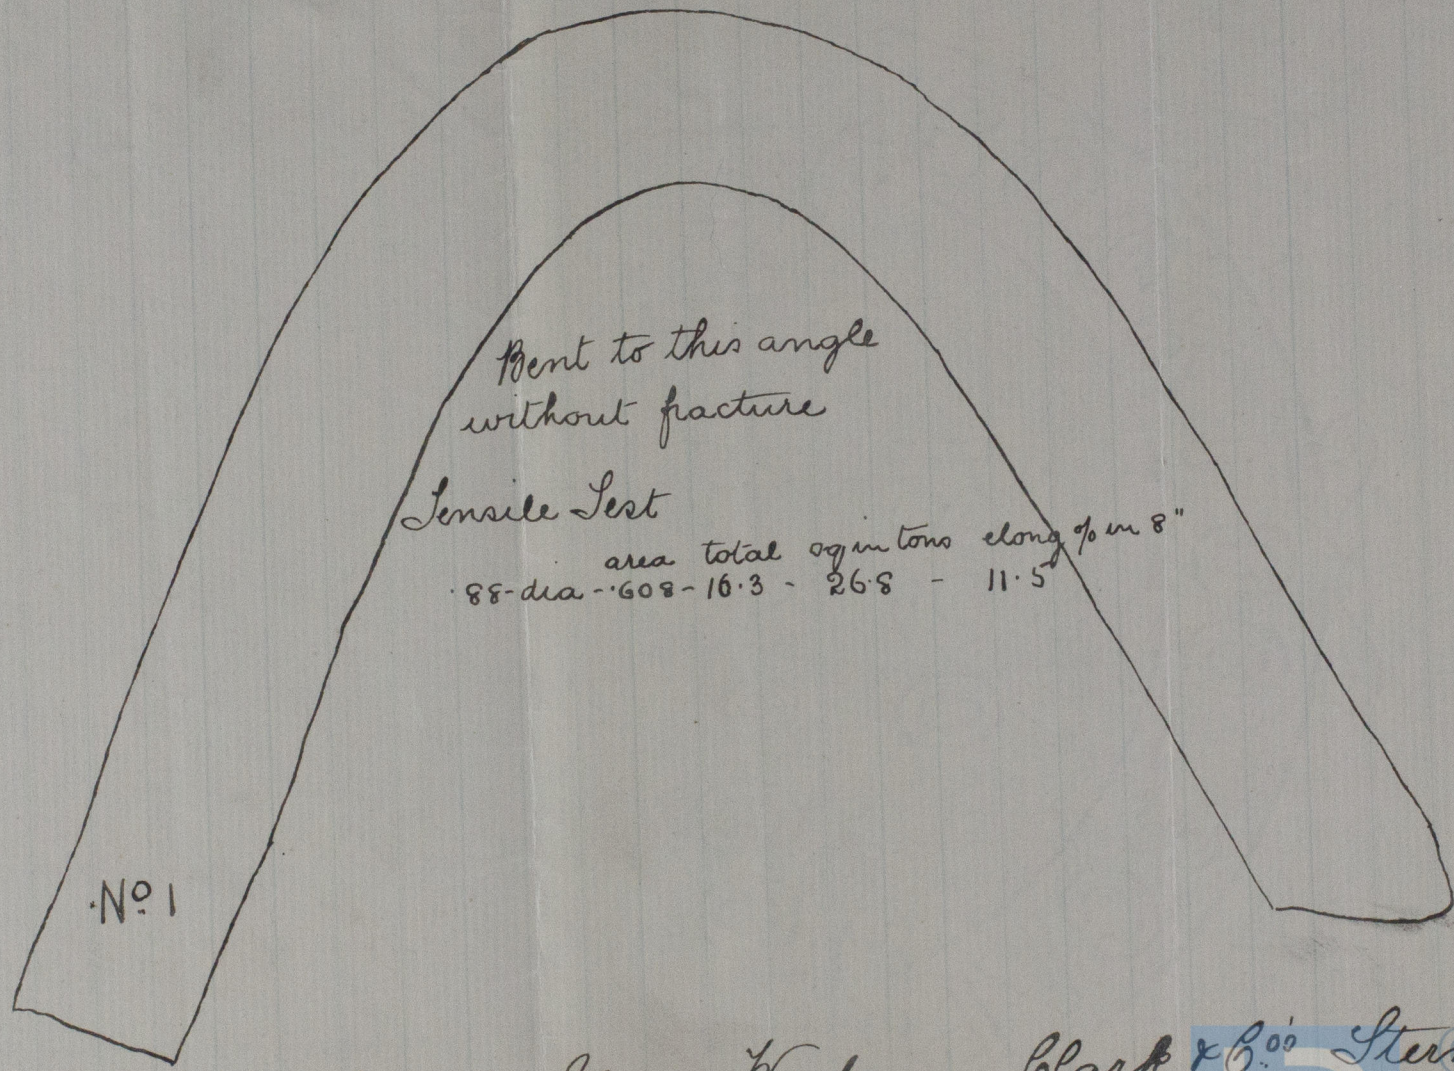 Bent to this angle
without fracture
Tensile Test
area total sq in tons elong % in 8"
·88-dia-·608-16.3 - 26.8 - 11.5
No 1
Clark & Co's